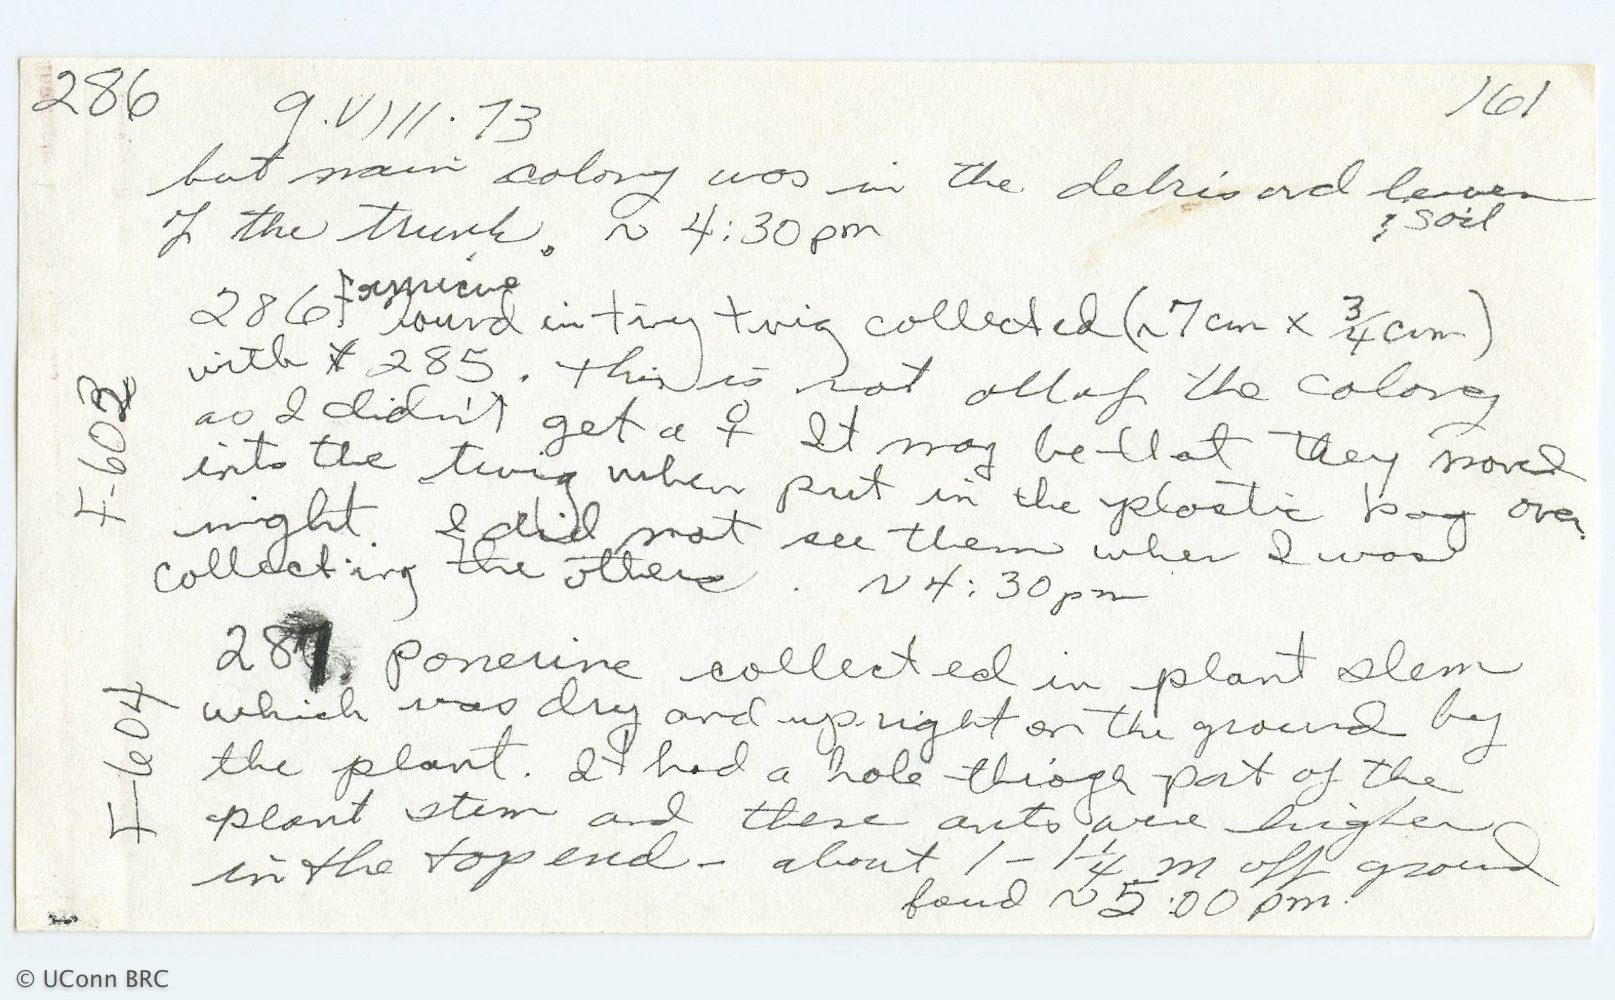 286 9.VIII.73 161
but main colony was in the debris and leaves
& soil
of the trunk. ~ 4:30pm
Formicine
286. found in tiny twig collected (~7cm x 3/4cm)
with # 285. This is not all of the colony
as I didn't get a ♀ It may be that they moved
into the twig when put in the plastic bag over
night. I did not see them when I was
collecting the others. ~ 4:30pm
F-603
287. Ponerine collected in plant stem
which was dry and upright on the ground by
the plant. It had a hole throgh part of the
plant stem and these ants were higher
in the top end - about 1 - 1 1/4 m off ground
found ~ 5:00 pm.
F-604
© UConn BRC